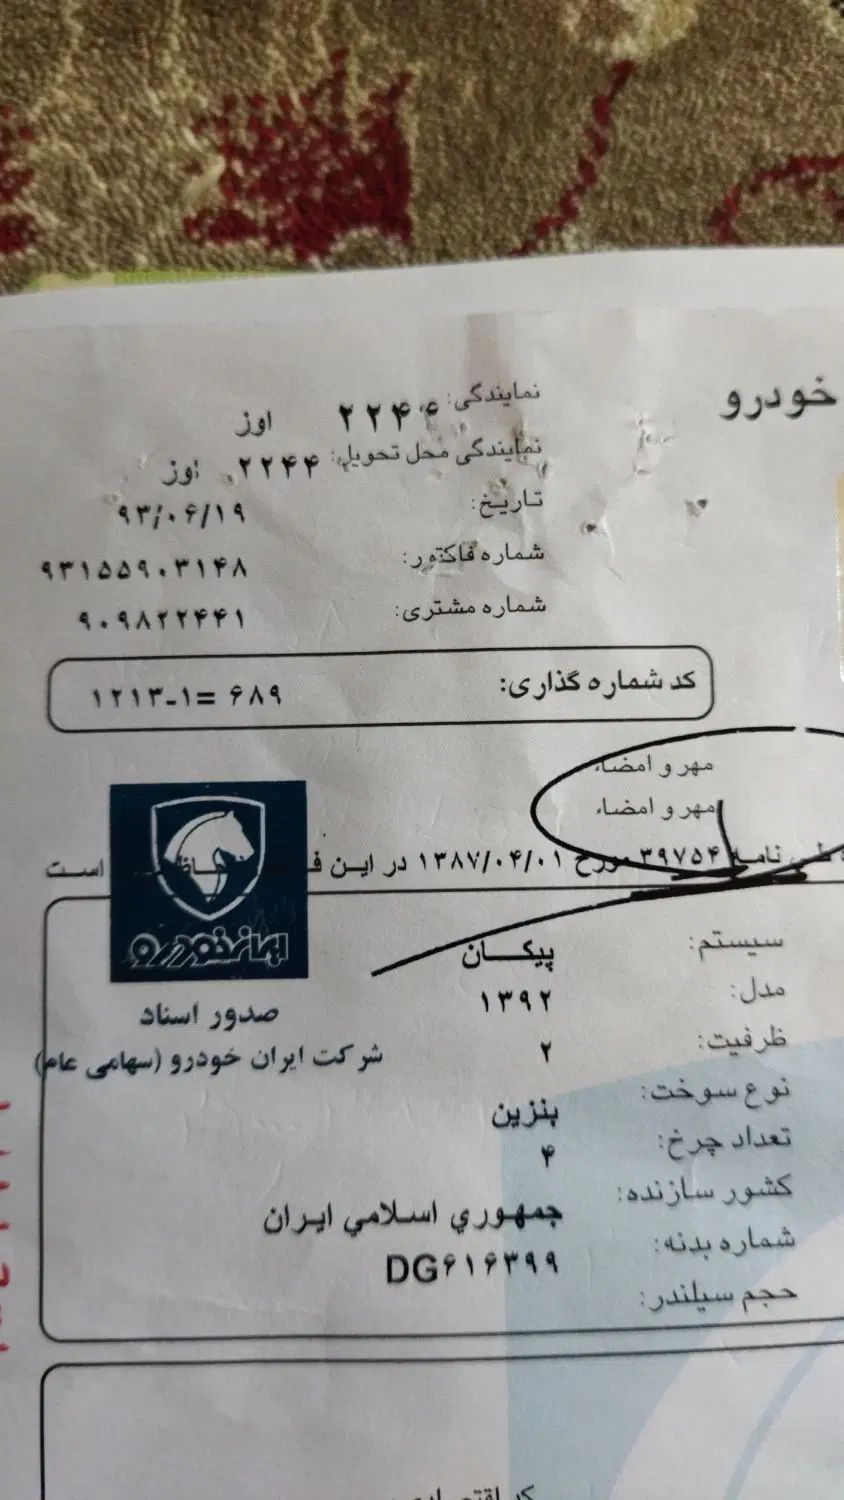 خودرو
نمایندگی: ۲۲۴۴ اوز
نمایندگی محل تحویل: ۲۲۴۴ اوز
تاریخ: ۹۳/۰۶/۱۹
شماره فاکتور: ۹۳۱۵۵۹۰۳۱۴۸
شماره مشتری: ۹۰۹۸۲۲۴۴۱
کد شماره گذاری: ۶۸۹ =۱-۱۲۱۳
مهر و امضاء
مهر و امضاء
طی نامه ۳۹۷۵۴ مورخ ۱۳۸۷/۰۴/۰۱ در این است
ایران خودرو
صدور اسناد
شرکت ایران خودرو (سهامی عام)
سیستم: پیکان
مدل: ۱۳۹۲
ظرفیت: ۲
نوع سوخت: بنزین
تعداد چرخ: ۴
کشور سازنده: جمهوري اسلامي ایران
شماره بدنه: DG۶۱۶۳۹۹
حجم سیلندر: